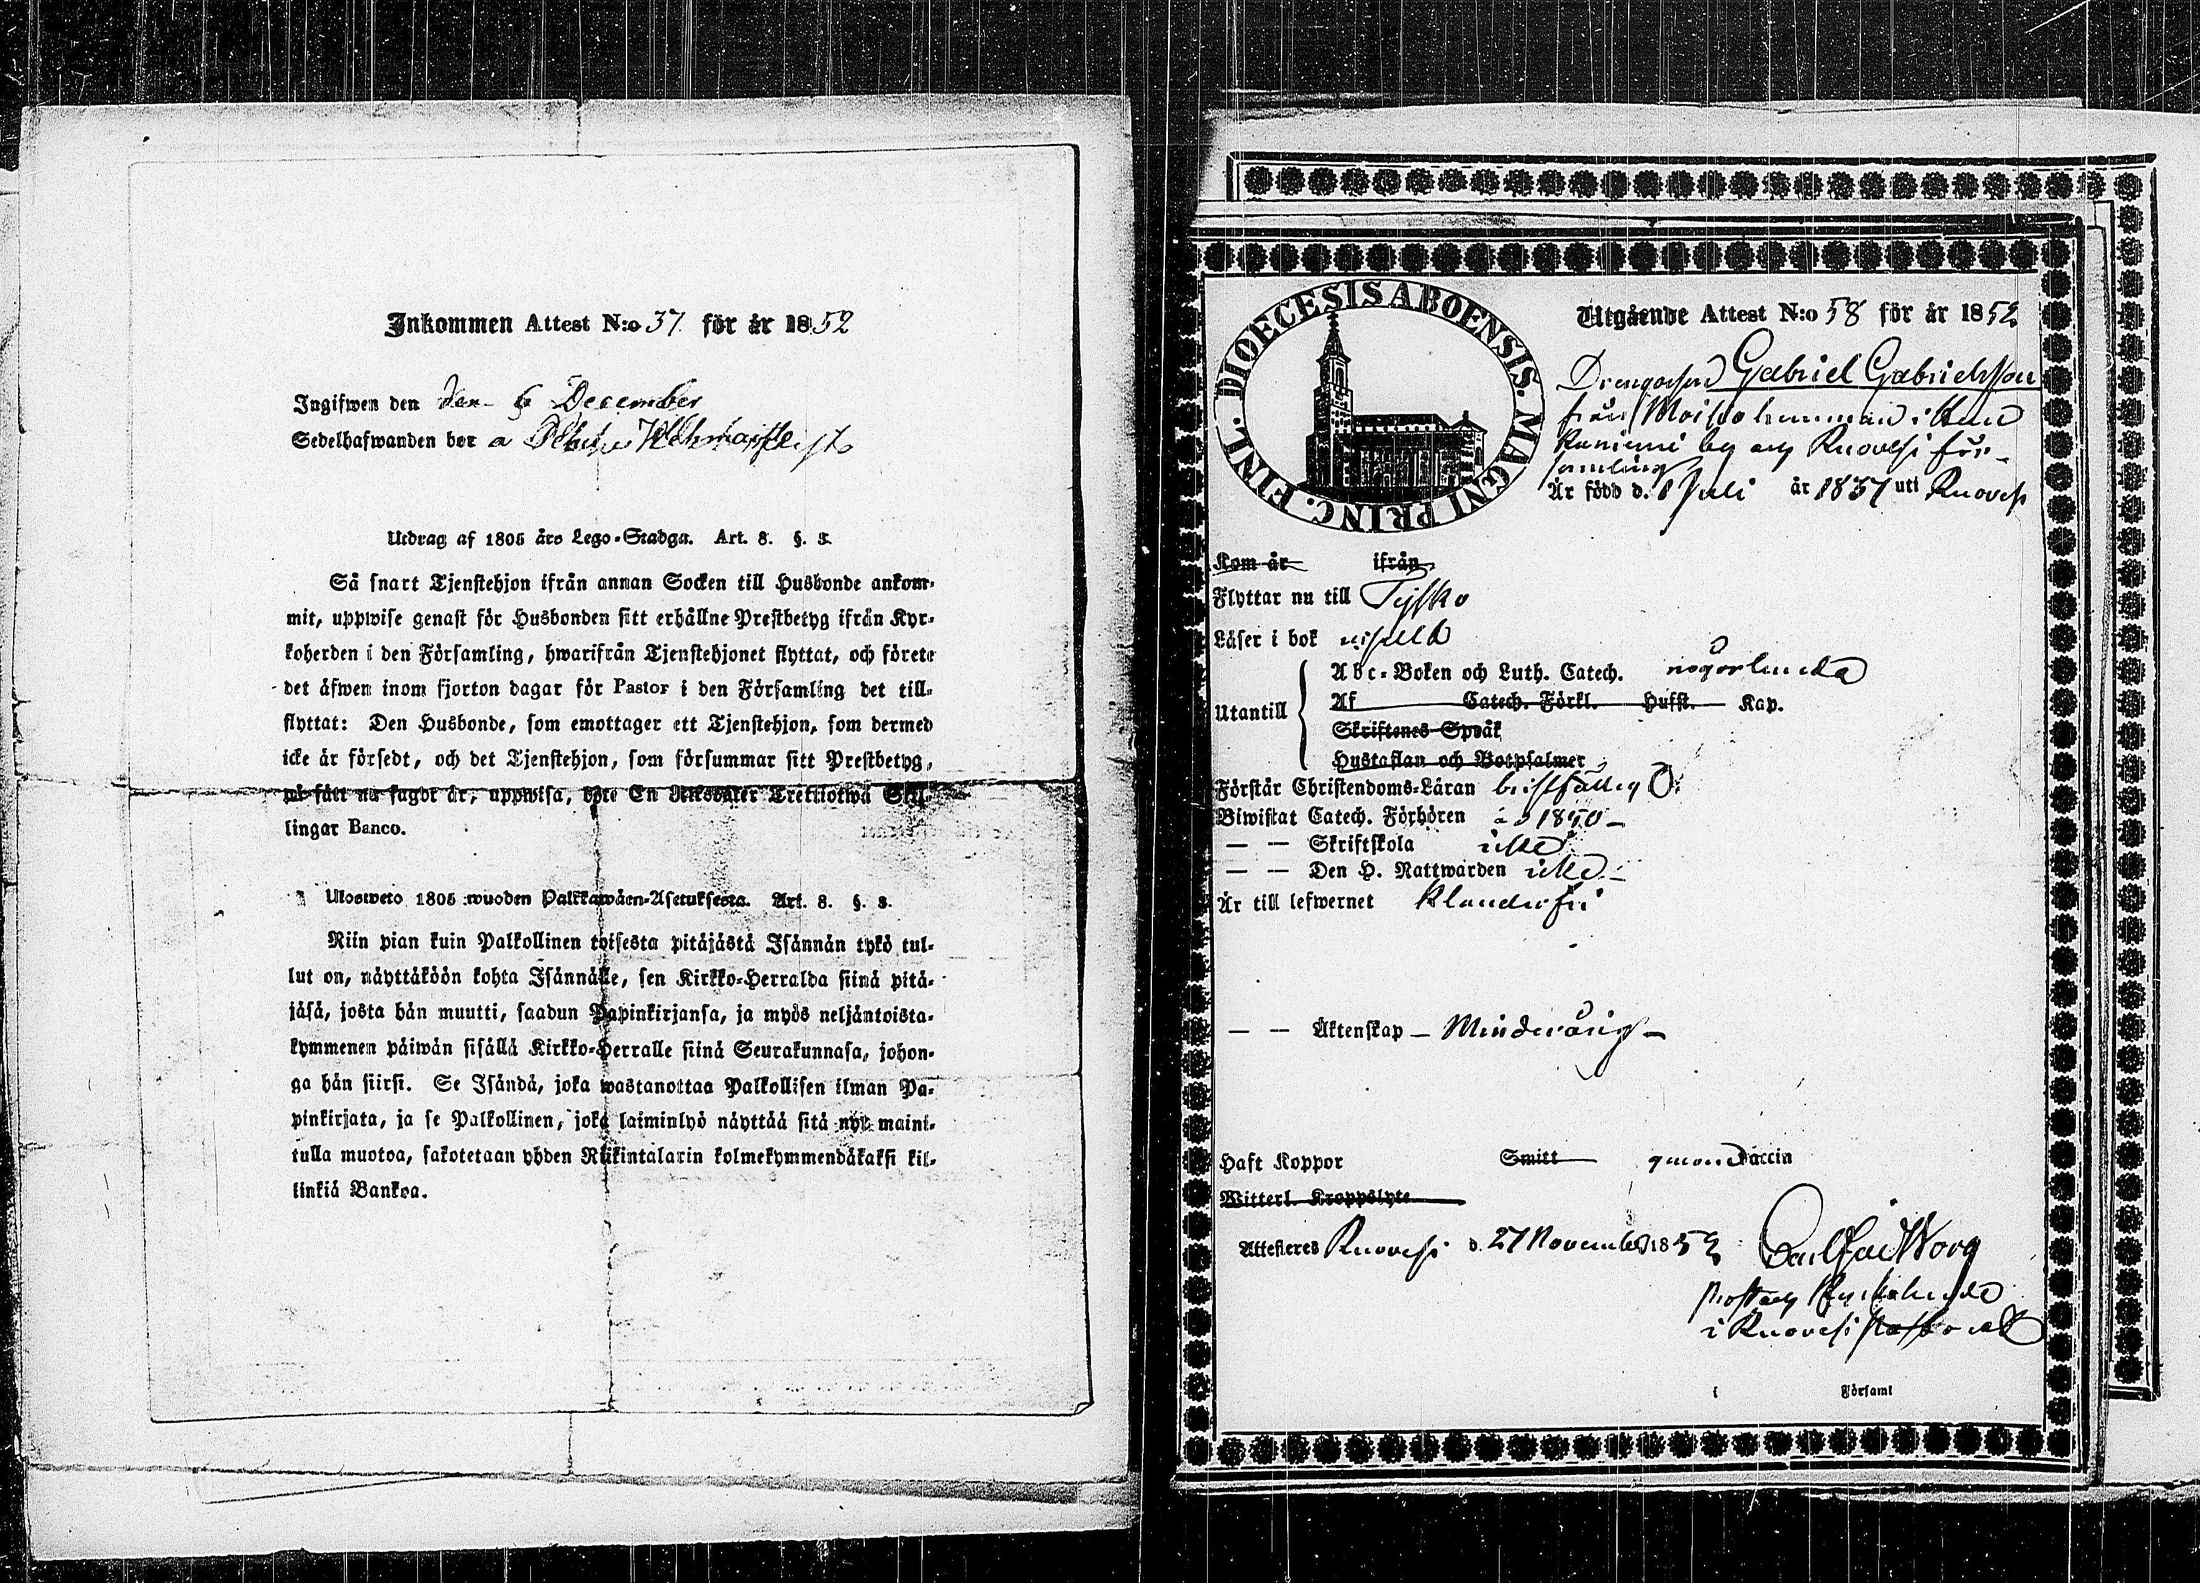 Inkommen Attest N:o 37 för år 1852
Ingifwen den den 6 December
Sedelhafwanden bor å
Utdrag af 1805 års Lego-Stadga. Art. 8. §. 3.
Så snart Tjenstehjon ifrån annan Socken till Husbonde ankom-
mit, uppwise genast för Husbonden sitt erhållne Prestbetyg ifrån Kyr-
koherden i den Församling, hwarifrån Tjenstehjonet flyttat, och förete
det äfwen inom fjorton dagar för Pastor i den Församling det till-
flyttat: Den Husbonde, som emottager ett Tjenstehjon, som dermed
icke är försedt, och det Tjenstehjon, som försummar sitt Prestbetyg,
på sätt nu sagdt är, uppwisa, böte En Riksdaler Trettiotwå Skil-
lingar Banco.
Ulosweto 1805 wuoden Palkkawäen-Asetuksesta. Art. 8. §. 3.
Niin pian kuin Palkollinen toisesta pitäjästä Isännän tykö tul-
lut on, näyttäköön kohta Isännälle, sen Kirkko-Herralda siinä pitä-
jäsä, josta hän muutti, saadun Papinkirjansa, ja myös neljäntoista-
kymmenen päiwän sisällä Kirkko-Herralle siinä Seurakunnasa, johon-
ga hän siirsi. Se Isändä, joka wastanottaa Palkollisen ilman Pa-
pinkirjata, ja se Palkollinen, joka laiminlyö näyttää sitä nyt maini-
tulla muotoa, sakotetaan yhden Riikintalarin kolmekymmendäkaksi kil-
linkiä Bankoa.
DIOECESIS ABOENSIS. MAGNI PRINC. FINL.
Utgående Attest N:o 58 för år 1852
Drengosson Gabriel Gabrielsson
från Moisio hemman i
by af Ruovesi för-
samling
Är född d. 1 Juli år 1837 uti Ruovesi
Kom år ifrån
Flyttar nu till
Läser i bok
Utantill
Abc-Boken och Luth. Catech. någorlunda
Af Catech. Förkl. Hufst. Kap.
Skriftenes Språk
Hustaflan och Botpsalmer
Förstår Christendoms-Läran bristfällig
Biwistat Catech. Förhören 1850
— — Skriftskola icke
— — Den H. Nattwarden icke
Är till lefwernet klanderfri
— — Äktenskap — Minderårig —
Haft Koppor Smitt genom Vaccin
Witterl. Kroppslyte
Attesteres Ruovesi d. 27 November 1852
i Ruovesi
i Församl